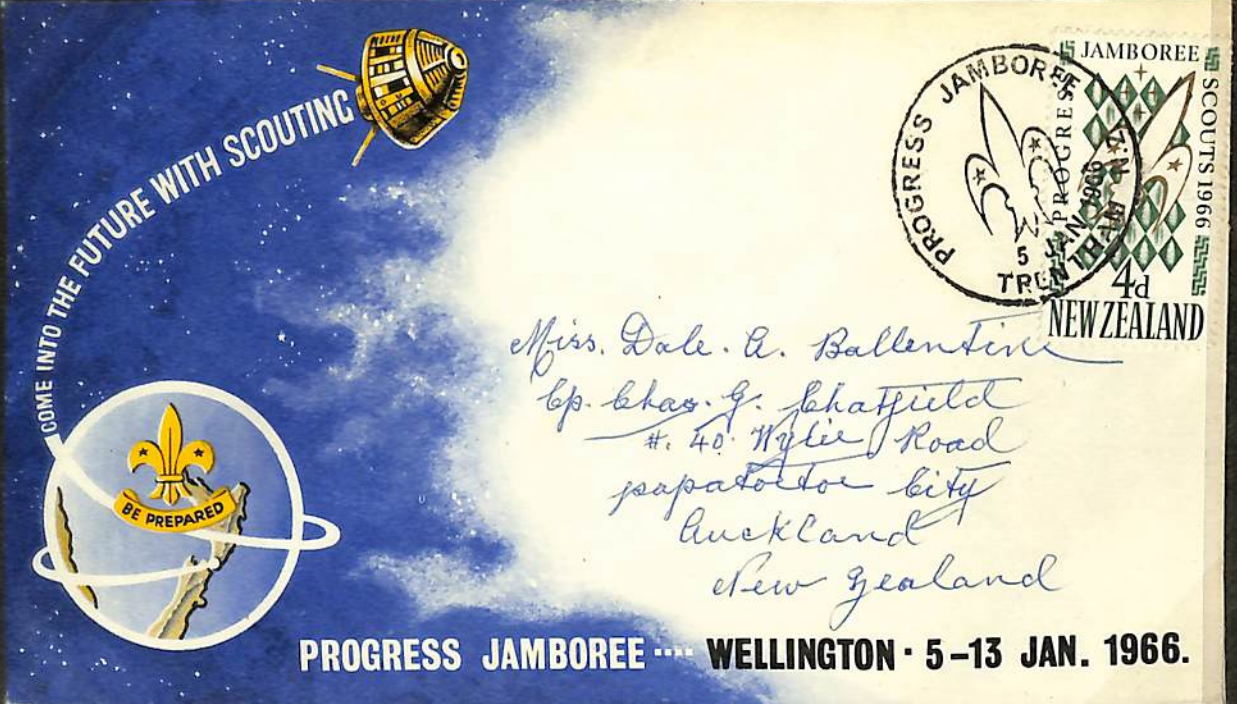 COME INTO THE FUTURE WITH SCOUTING
BE PREPARED
PROGRESS JAMBOREE
5 JAN 1966
TRENTHAM N.Z.
JAMBOREE
PROGRESS
SCOUTS 1966
4d
NEW ZEALAND
Miss. Dale. A. Ballentine
Chas. G. Chatfield
#. 40. Wylie Road
papatoetoe City
Auckland
New Zealand
PROGRESS JAMBOREE .... WELLINGTON · 5-13 JAN. 1966.